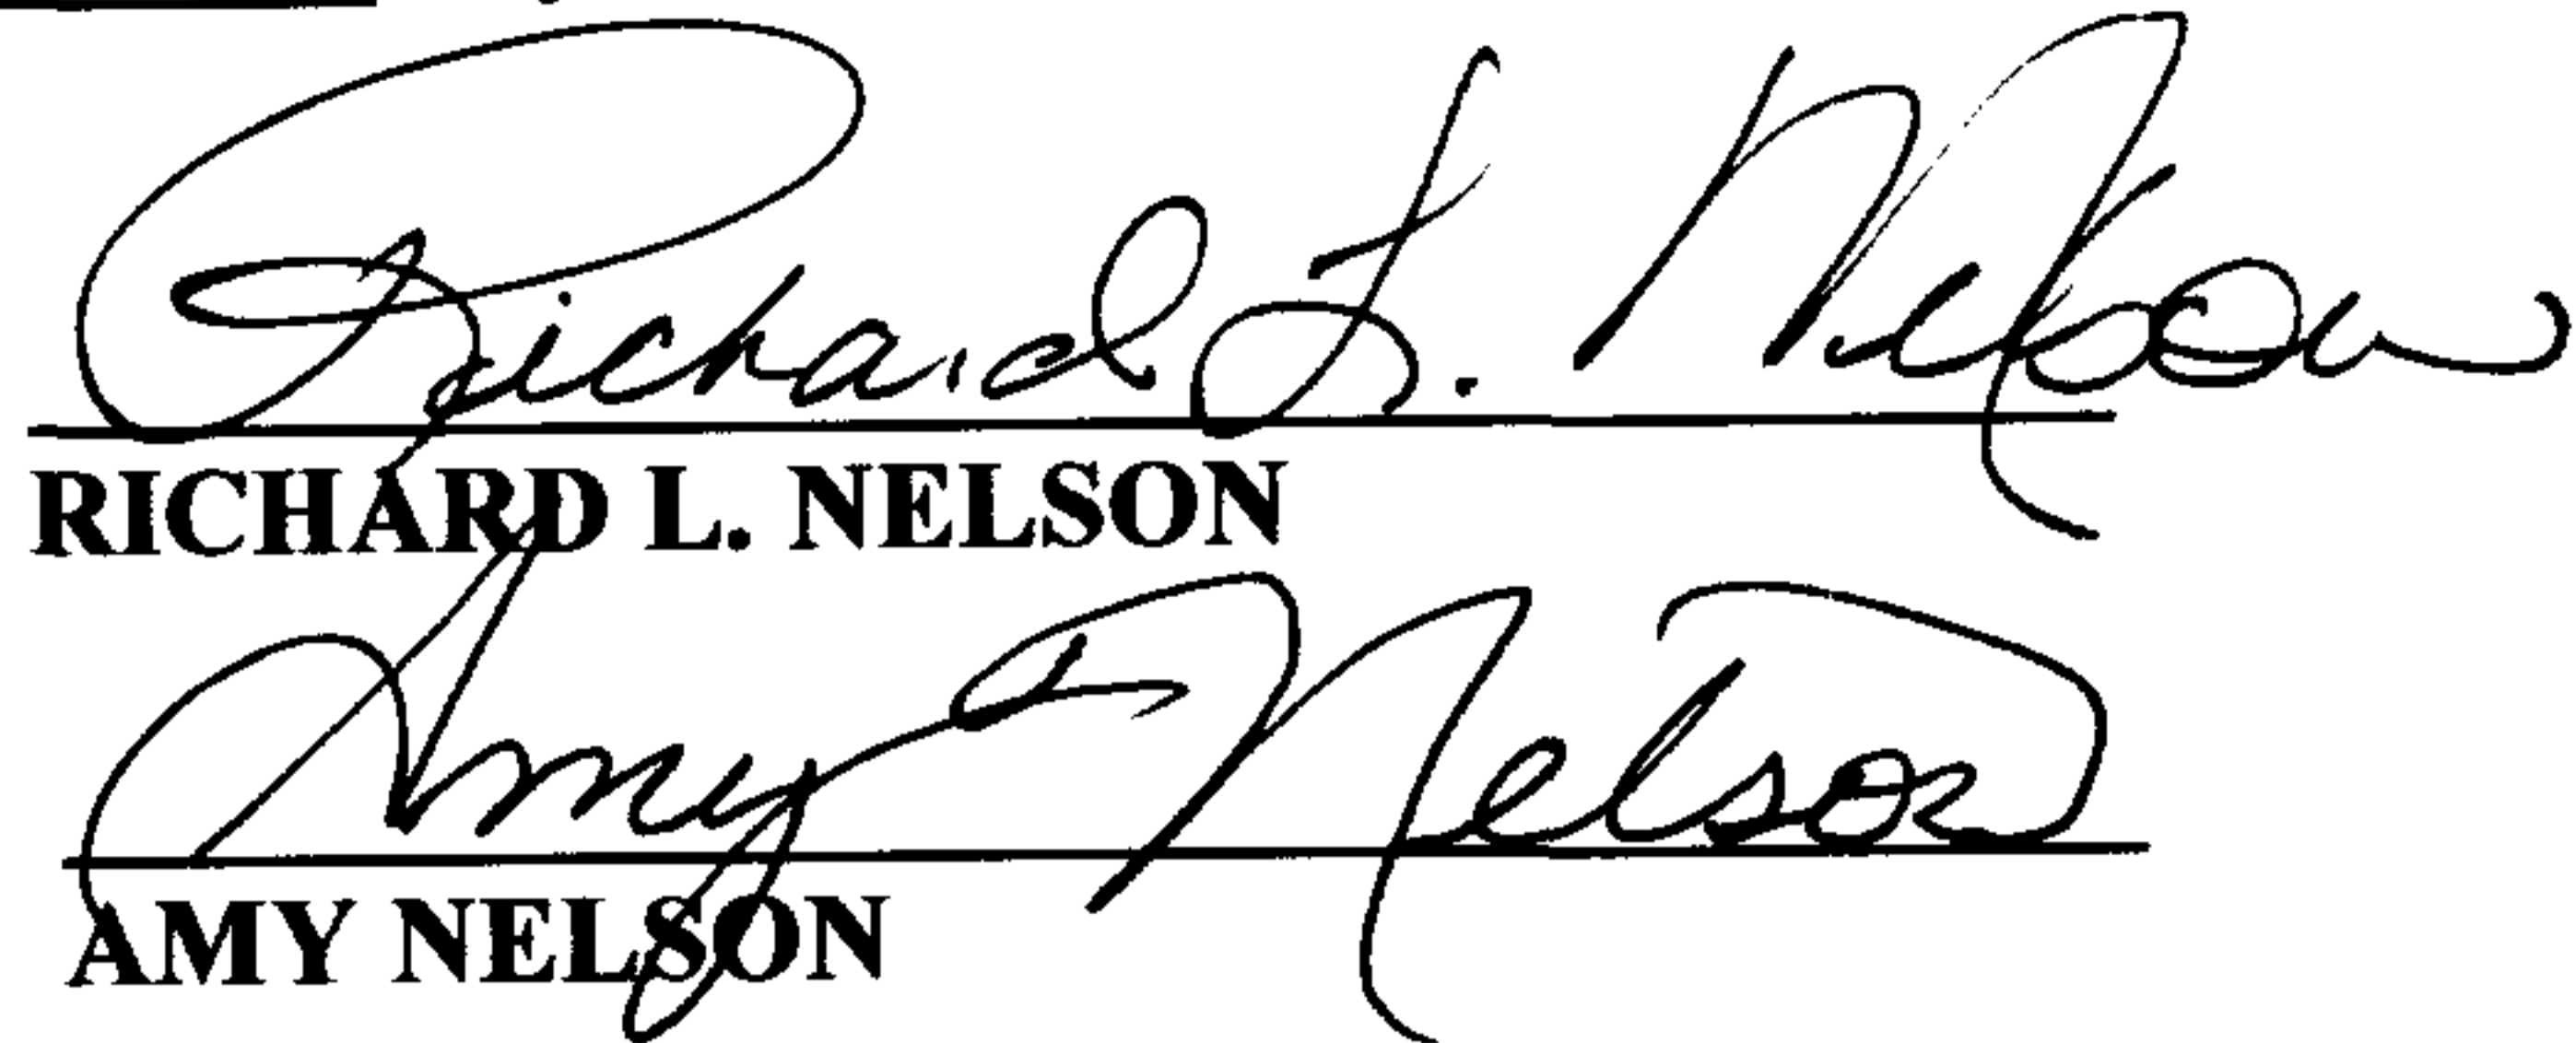 Richard L. Nelson
RICHARD L. NELSON
Amy Nelson
AMY NELSON